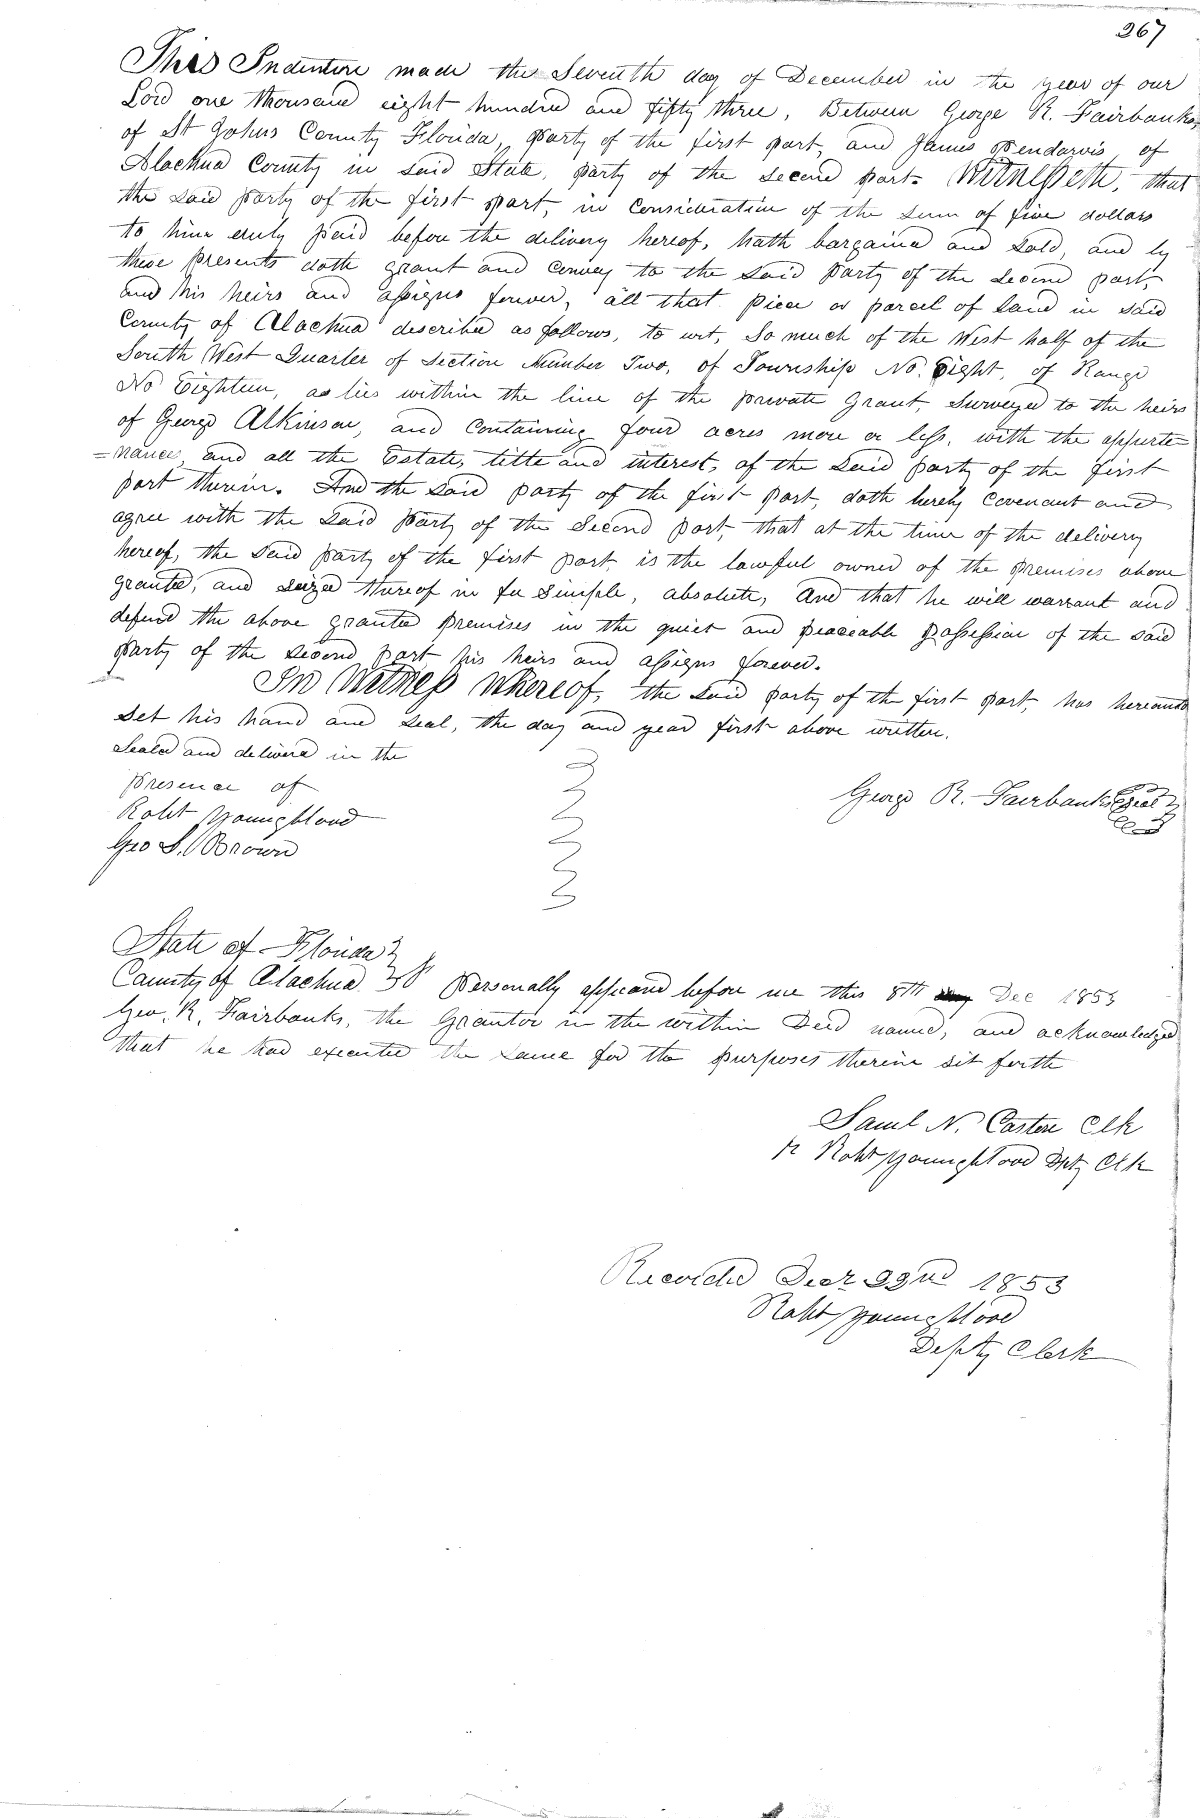 267
This Indenture made the Seventh day of December in the year of our
Lord one thousand eight hundred and fifty three, Between George R. Fairbanks,
of St Johns County Florida, party of the first part, and James Pendarvis, of
Alachua County in said State, party of the second part. Witnesseth, that
the said party of the first part, in consideration of the sum of five dollars
to him duly paid before the delivery hereof, hath bargained and sold, and by
these presents doth grant and convey to the said party of the second part,
and his heirs and assigns forever, all that piece or parcel of land in said
County of Alachua described as follows, to wit, So much of the West half of the
South West Quarter of Section Number Two, of Township No. Eight, of Range
No Eighteen, as lies within the line of the private Grant, Surveyed to the heirs
of George Atkinson, and containing four acres more or less, with the appurte=
=nances, and all the Estate, title and interest, of the said party of the first
part therein. And the said party of the first part, doth hereby covenant and
agree with the said party of the Second part, that at the time of the delivery
hereof, the said party of the first part, is the lawful owner of the premises above
granted, and seized thereof in fee simple, absolute, And that he will warrant and
defend the above granted premises in the quiet and peaceable possession of the said
party of the second part his heirs and assigns forever.
In Witness Whereof, the said party of the first part, has hereunto
set his hand and seal, the day and year first above written.
Seald and deliverd in the
presence of
George R. Fairbanks Seal
Robt Youngblood
Geo S. Brown
State of Florida
County of Alachua Personally appeared before me this 8th Dec 1853
Geo. R. Fairbanks, the Grantor in the within Deed named, and acknowledged
that he had executed the same for the purposes therein set forth
Saml N. Carter Clk
Robt Youngblood Dpty Clk
Recorded Decr 22nd 1853
Robt Youngblood
Depty Clerk